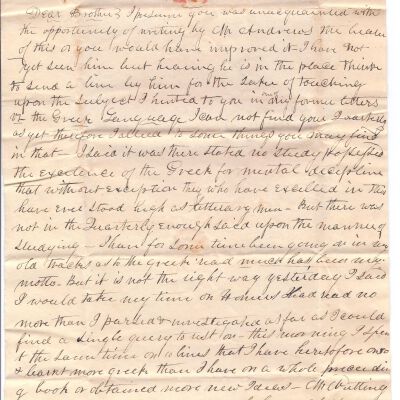 Dear Brother, I presume you was unacquainted with
the opportunity of writing by Mr Andrews the bearer
of this or you would have improved it I have not
yet seen him but hearing he is in the place think
to send a line by him for the sake of touching
upon the subject I hinted to you in one of my former letters
the Greek Language I can not find you
as yet I to some things you may find
in that – I said it was there stated no study possessed
the excellence of the Greek for mental discipline
that without exception they who have excelled in this
have ever stood high as literary men – But there was
not in the Quarterly enough said upon the manner of
studying – I have for some time been going on in my
old tracks as to the greek read much has been my
motto. But it is not the right way yesterday I said
I would take my time on Homers Iliad read no
more than I parsed & investigated as far as I could
find a single query to rest on – this morning I spent
the same time on lines that I have heretofore
& learnt more greek than I have on a whole preceeding
book or obtained more new Ideas – Mr Cutting